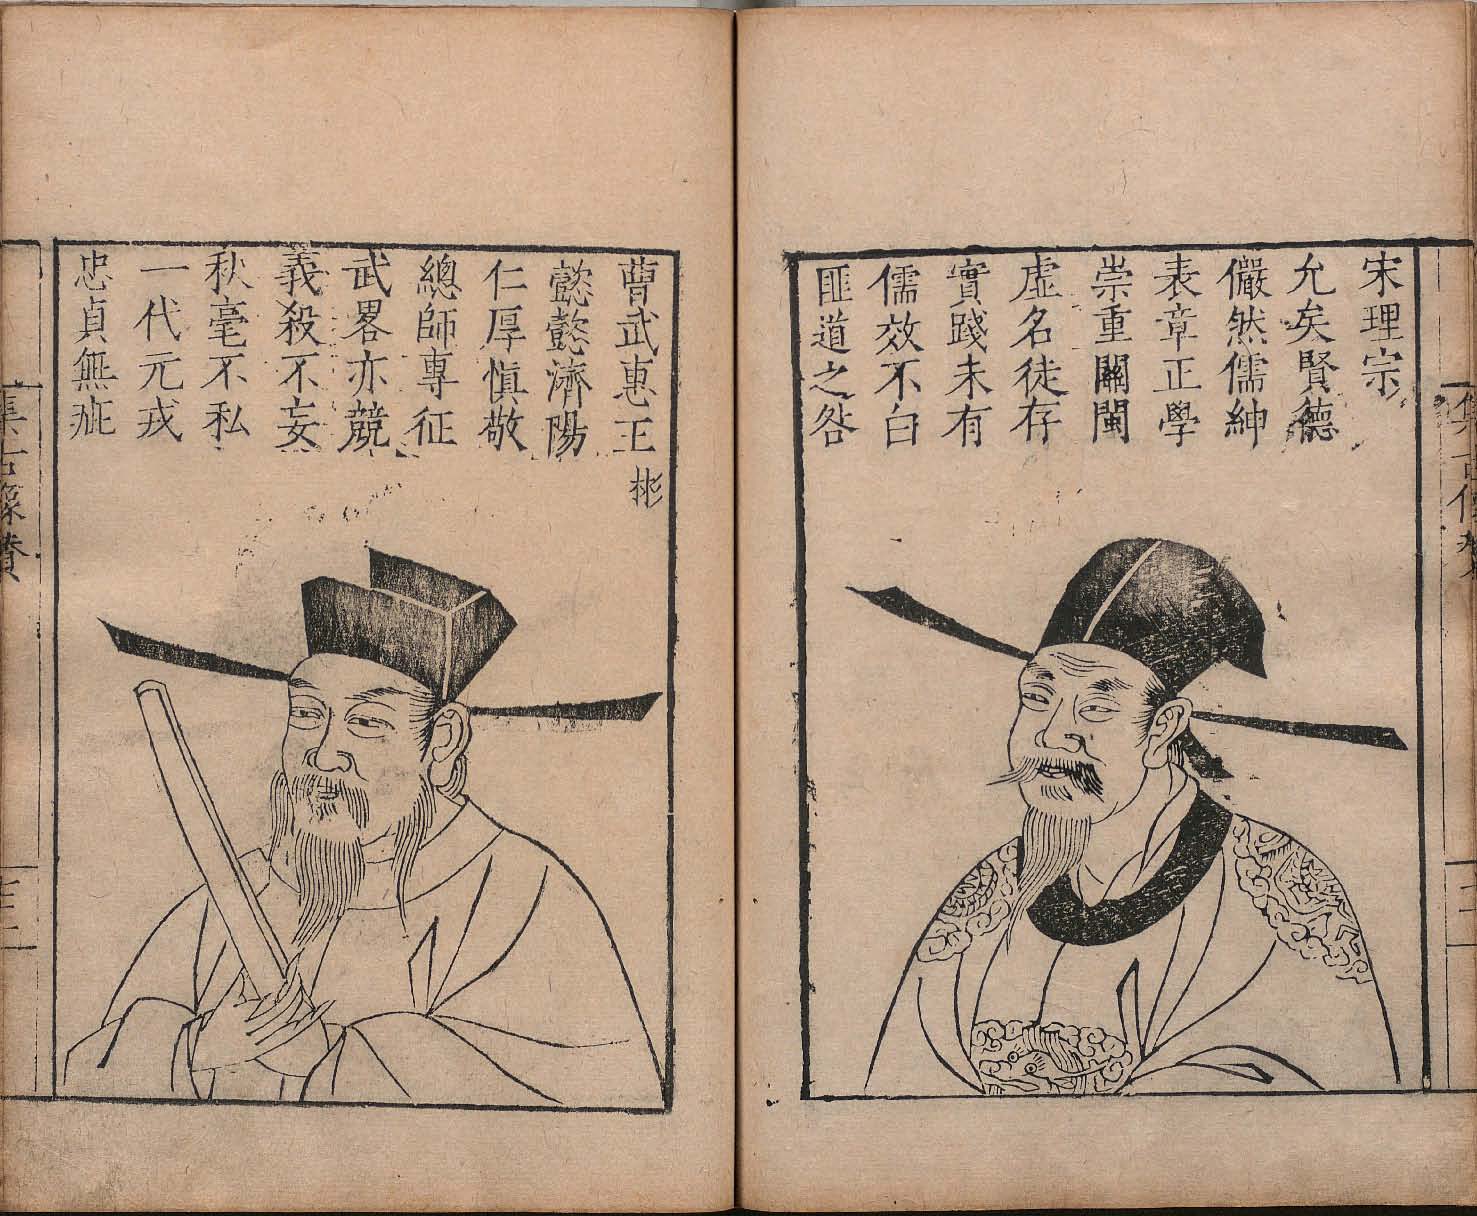 宋理宗
允矣賢德
儼然儒紳
表章正學
崇重關閩
虛名徒存
實踐未有
儒效不白
匪道之咎
曹武惠王彬
懿懿濟陽
仁厚慎敬
總師專征
武畧亦競
義殺不妄
秋毫不私
一代元戎
忠貞無疵
集古像贊